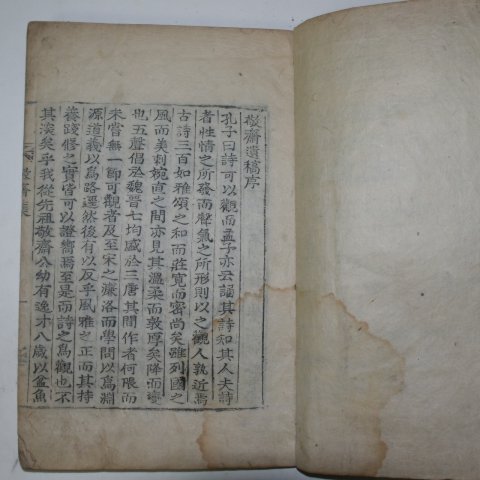 敬齋遺稿序
孔子曰詩可以觀而孟子亦云誦其詩知其人夫詩
者性情之所發而聲氣之所形則以之觀人孰近焉
古詩三百如雅頌之和而莊寬而密尚矣雖列國之
風而美刺婉直之間亦見其溫柔而敦厚矣降而變
也五聲倡於魏晉七均盛於三唐其間作者何限而
未嘗無一節可觀者及至宋之濂洛而學問以爲淵
源道義以爲路邁然後有以反乎風雅之正而其持
養踐修之實皆可以證嚮焉至是而詩之爲觀也不
其深矣乎我從先祖敬齋公幼有逸才八歲以盆魚
敬齋集